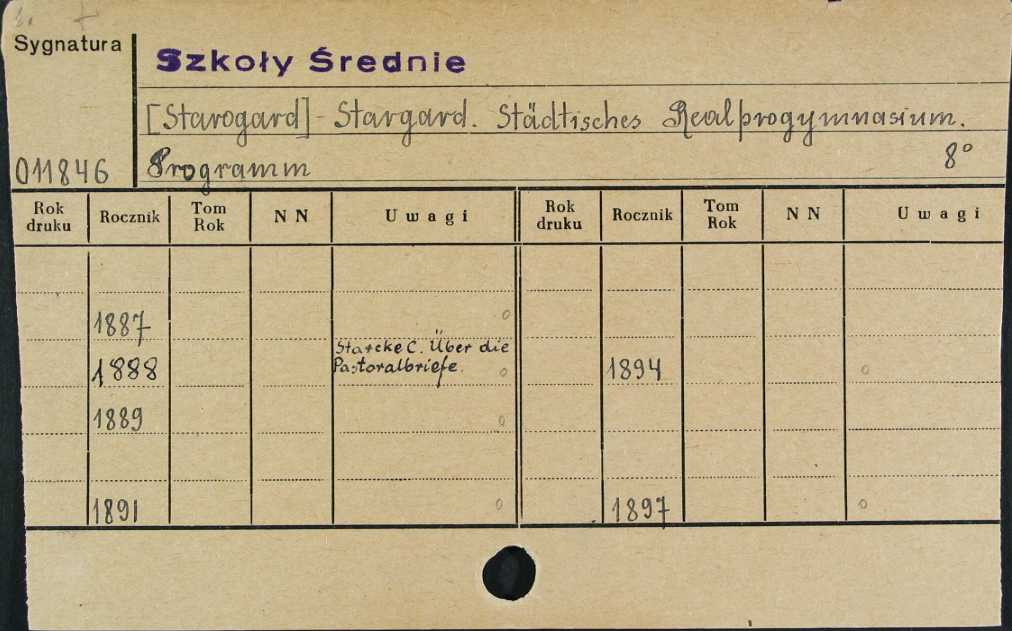 Sygnatura
Szkoły Średnie
[Starogard] - Stargard. Städtisches Realprogymnasium.
011846 Programm 8°
Rok druku Rocznik Tom Rok N N Uwagi Rok druku Rocznik Tom Rok N N Uwagi
1887 o
Starcke C. Über die
1888 Pastoralbriefe. o 1894 o
1889 o
1891 o 1897 o